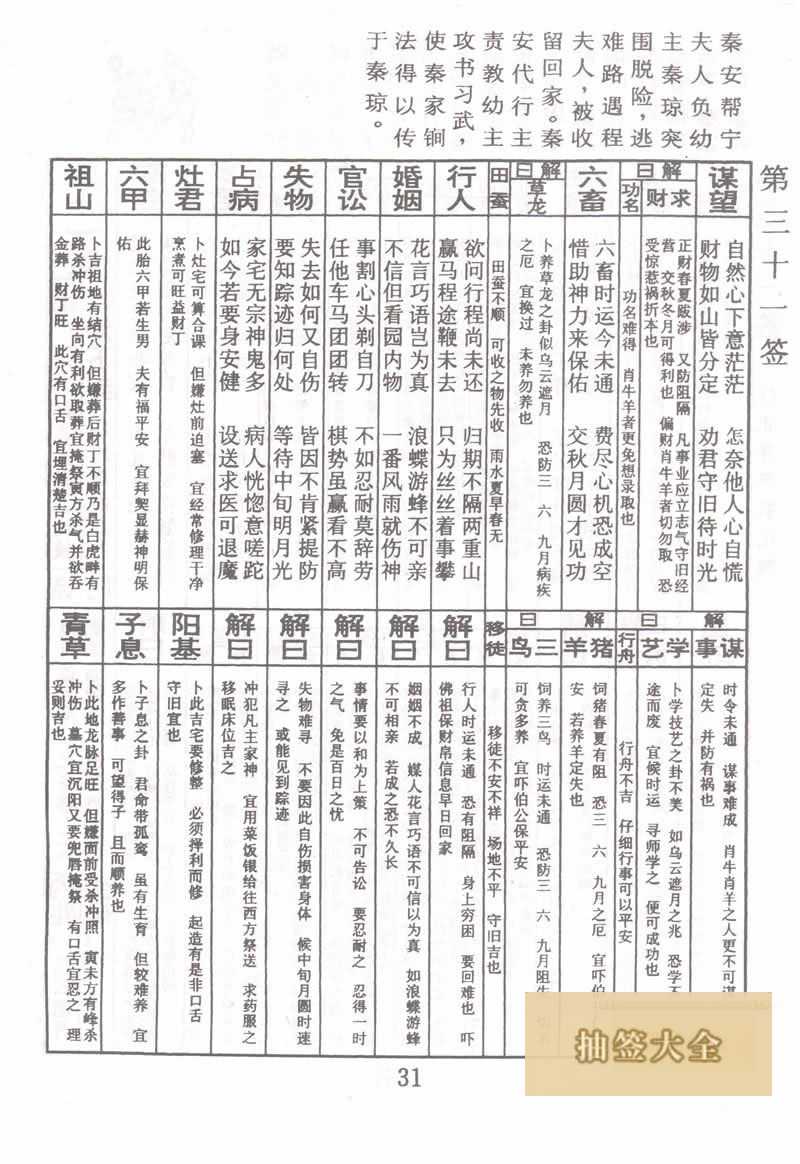 第三十一签
秦安帮宁
夫人负幼
主秦琼突
围脱险，逃
难路遇程
夫人，被收
留回家。秦
安代行主
责教幼主
攻书习武，
使秦家锏
法得以传
于秦琼。
谋望
自然心下意茫茫 怎奈他人心自慌
财物如山皆分定 劝君守旧待时光
解曰
求财
正财春夏跋涉 又防阻隔 凡事业应立志气守旧经
营 交秋冬月可得利也 偏财肖牛羊者切勿取 恐
受惊惹祸折本也
功名
功名难得 肖牛羊者更免想录取也
六畜
六畜时运今未通 费尽心机恐成空
惜助神力来保佑 交秋月圆才见功
解曰
草龙
卜养草龙之卦似乌云遮月 恐防三 六 九月病疾
之厄 宜换过 未养勿养也
田蚕
田蚕不顺 可收之物先收 雨水夏早春无
行人
欲问行程尚未还 归期不隔两重山
赢马程途鞭未去 只为丝丝着事攀
婚姻
花言巧语岂为真 浪蝶游蜂不可亲
不信但看园内物 一番风雨就伤神
官讼
事割心头剃自刀 不如忍耐莫辞劳
任他车马团团转 棋势虽赢看不高
失物
失去如何又自伤 皆因不肯紧提防
要知踪迹归何处 等待中旬明月光
占病
家宅无宗神鬼多 病人恍惚意嗟跎
如今若要身安健 设送求医可退魔
灶君
卜灶宅可算合课 但嫌灶前迫塞 宜经常修理干净
烹煮可旺益财丁
六甲
此胎六甲若生男 夫有福平安 宜拜契显赫神明保
佑
祖山
卜吉祖地有结穴 但嫌葬后财丁不顺乃是白虎畔有
路杀冲伤 坐向有利欲取葬宜掩祭寅方杀气并欲吞
金葬 财丁旺 此穴有口舌 宜埋清楚吉也
解曰
谋事
时令未通 谋事难成 肖牛肖羊之人更不可谋
定失 并防有祸也
学艺
卜学技艺之卦不美 如乌云遮月之兆 恐学不
途而废 宜候时运 寻师学之 便可成功也
行舟
行舟不吉 仔细行事可以平安
解曰
猪羊
饲猪春夏有阻 恐三 六 九月之厄 宜吓伯
安 若养羊定失也
三鸟
饲养三鸟 时运未通 恐防三 六 九月阻生
可贪多养 宜吓伯公保平安
移徒
移徒不安不祥 场地不平 守旧吉也
解曰
行人时运未通 恐有阻隔 身上穷困 要回难也 吓
佛祖保财帛信息早日回家
解曰
姻姻不成 媒人花言巧语不可信以为真 如浪蝶游蜂
不可相亲 若成之恐不久长
解曰
事情要以和为上策 不可告讼 要忍耐之 忍得一时
之气 免是百日之忧
解曰
失物难寻 不要因此自伤损害身体 候中旬月圆时速
寻之 或能见到踪迹
解曰
冲犯凡主家神 宜用菜饭银给往西方祭送 求药服之
移眠床位吉之
阳基
卜此吉宅要修整 必须择利而修 起造有是非口舌
守旧宜也
子息
卜子息之卦 君命带孤鸾 虽有生育 但较难养 宜
多作善事 可望得子 且而顺养也
青草
卜此地龙脉足旺 但嫌面前受杀冲照 寅未方有峰杀
冲伤 墓穴宜沉阳又要兜唇掩祭 有口舌宜忍之 理
妥则吉也
抽签大全
31